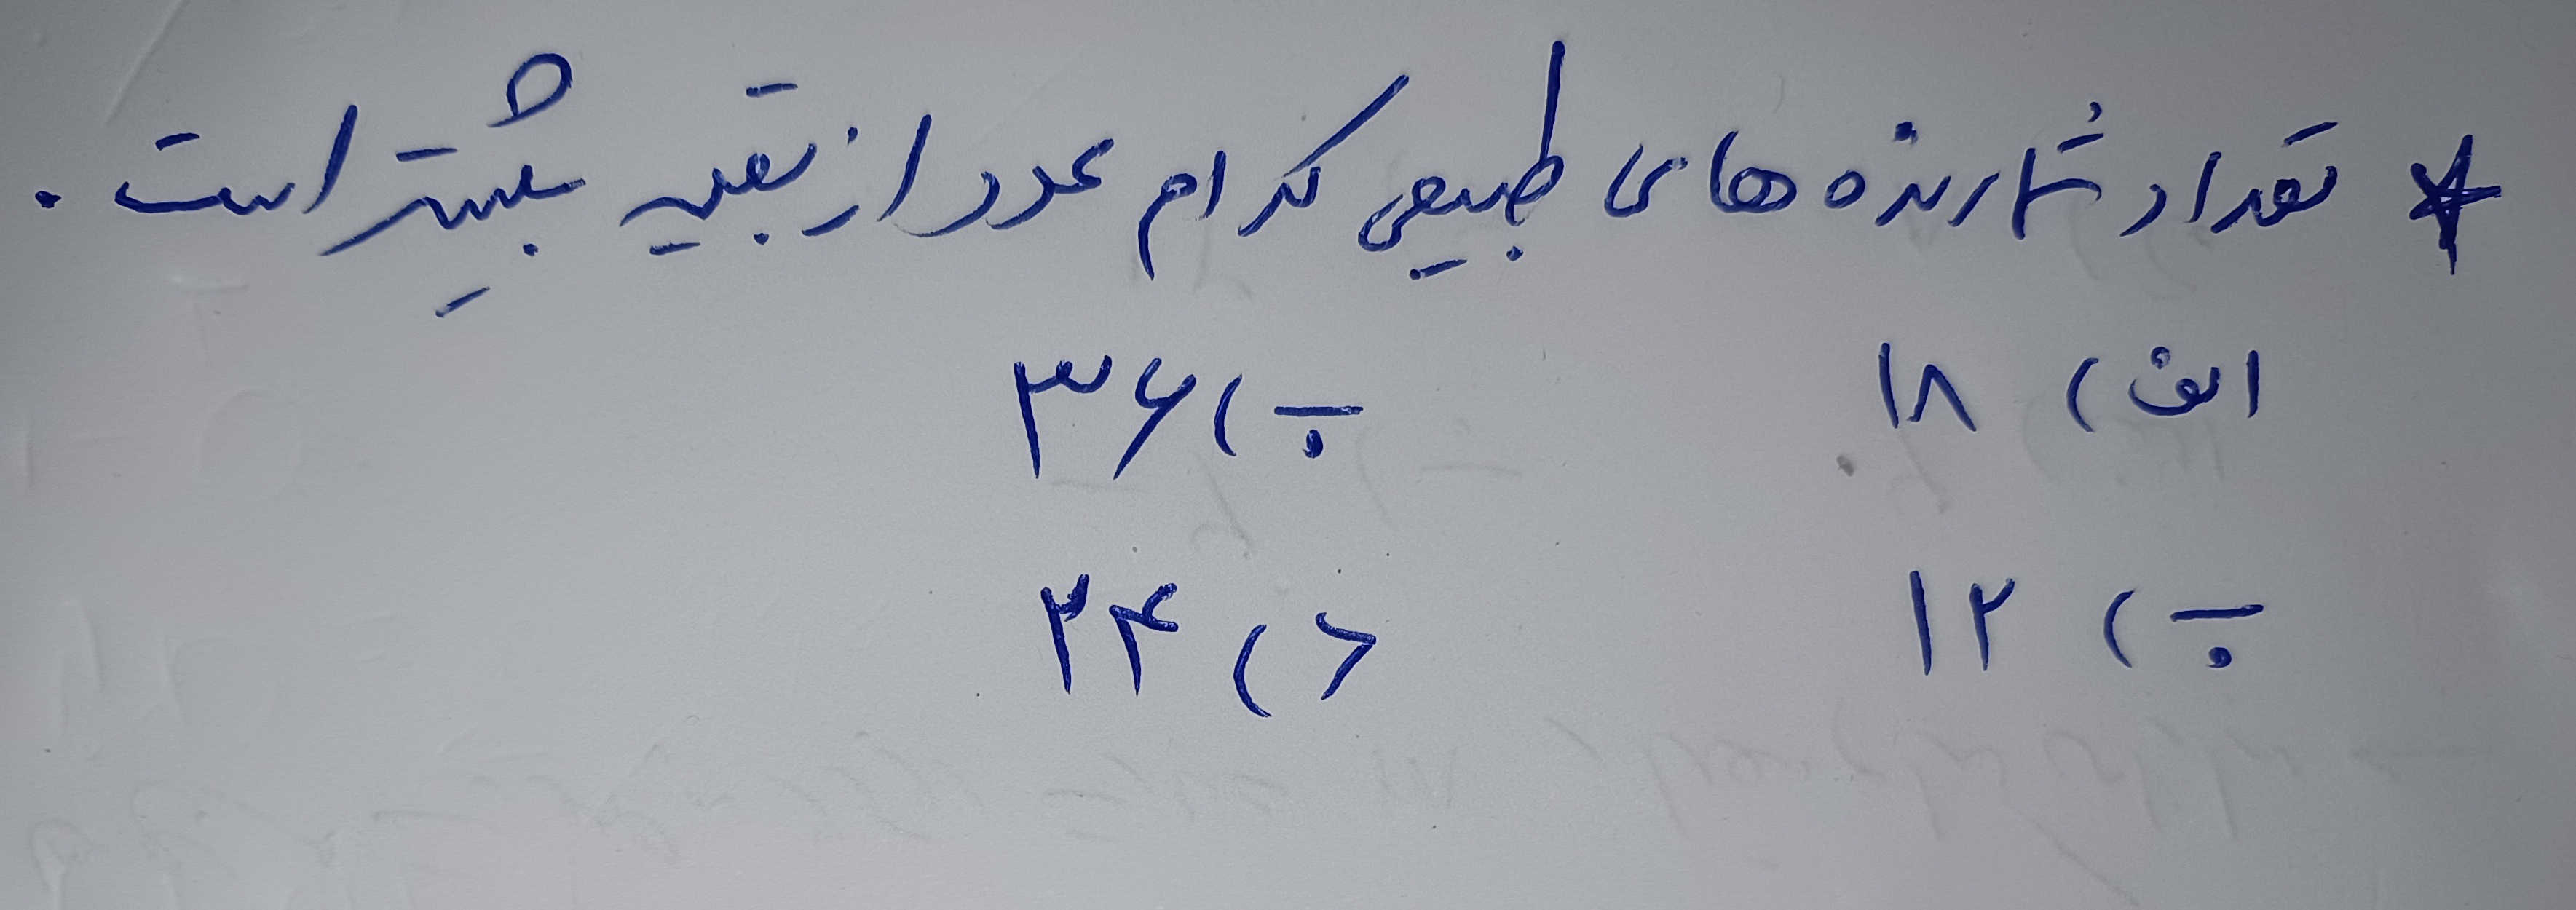 * تعداد شمارنده های طبیعی کدام عدد از بقیه بیشتر است.
الف) ۱۸ ب) ۳۶
ب) ۱۲ د) ۲۴